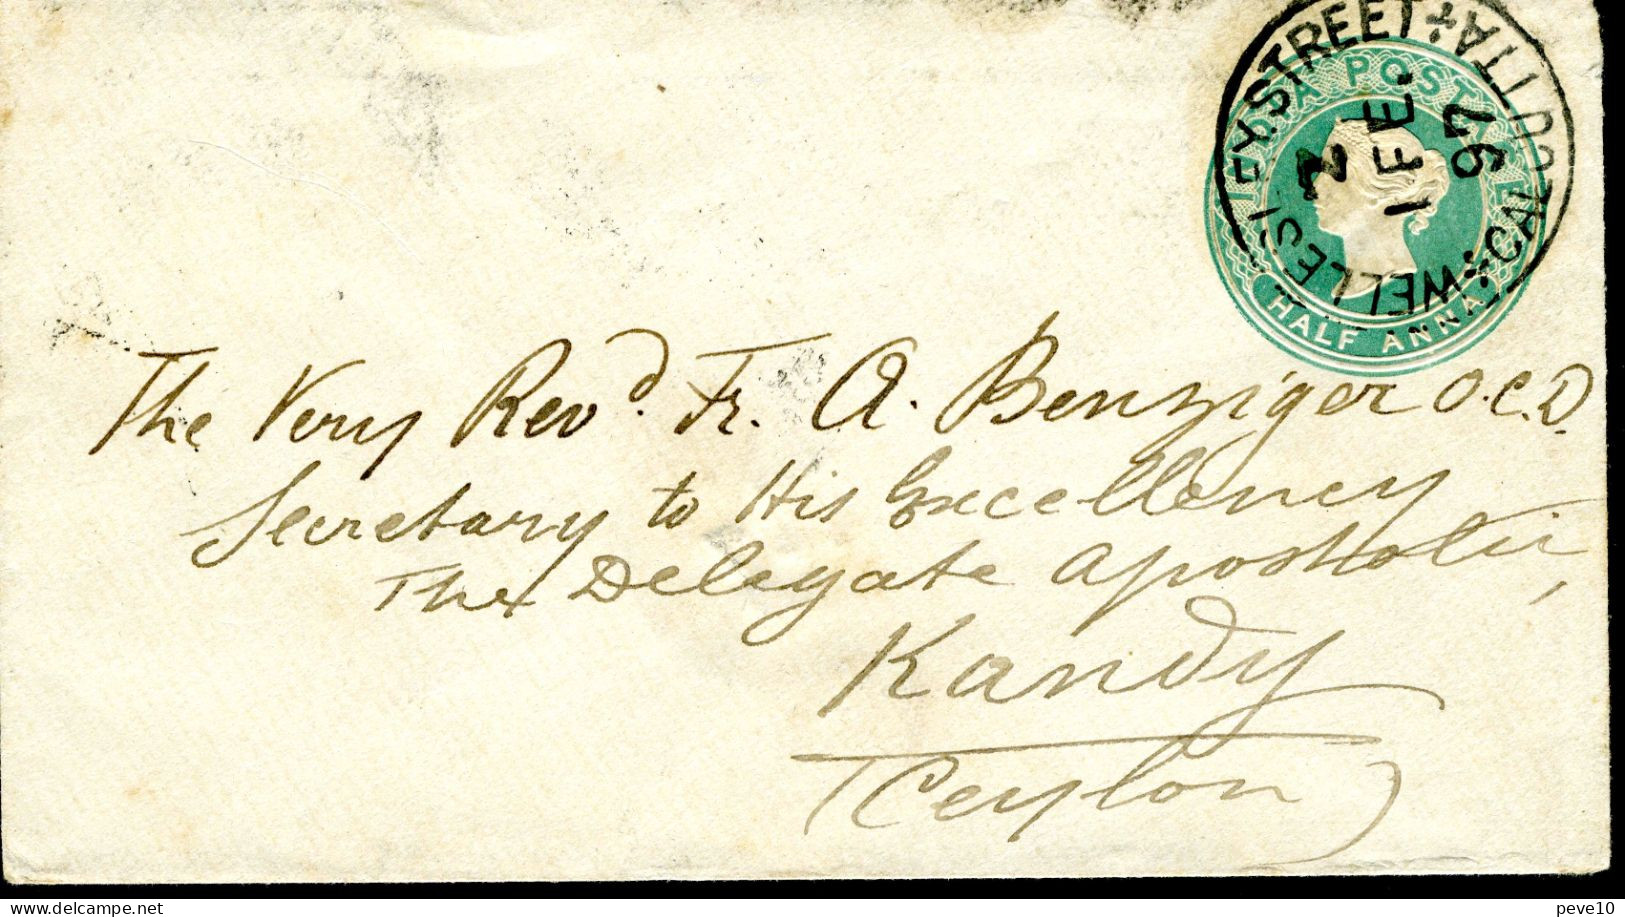 WELLESLEY.STREET.
CALCUTTA
2
1 FE.
97
INDIA POSTAGE
HALF ANNA
The Very Revd. Fr. A. Benziger O.C.D.
Secretary to His Excellency
The Delegate Apostolic,
Kandy
(Ceylon)
delcampe.net
peve10